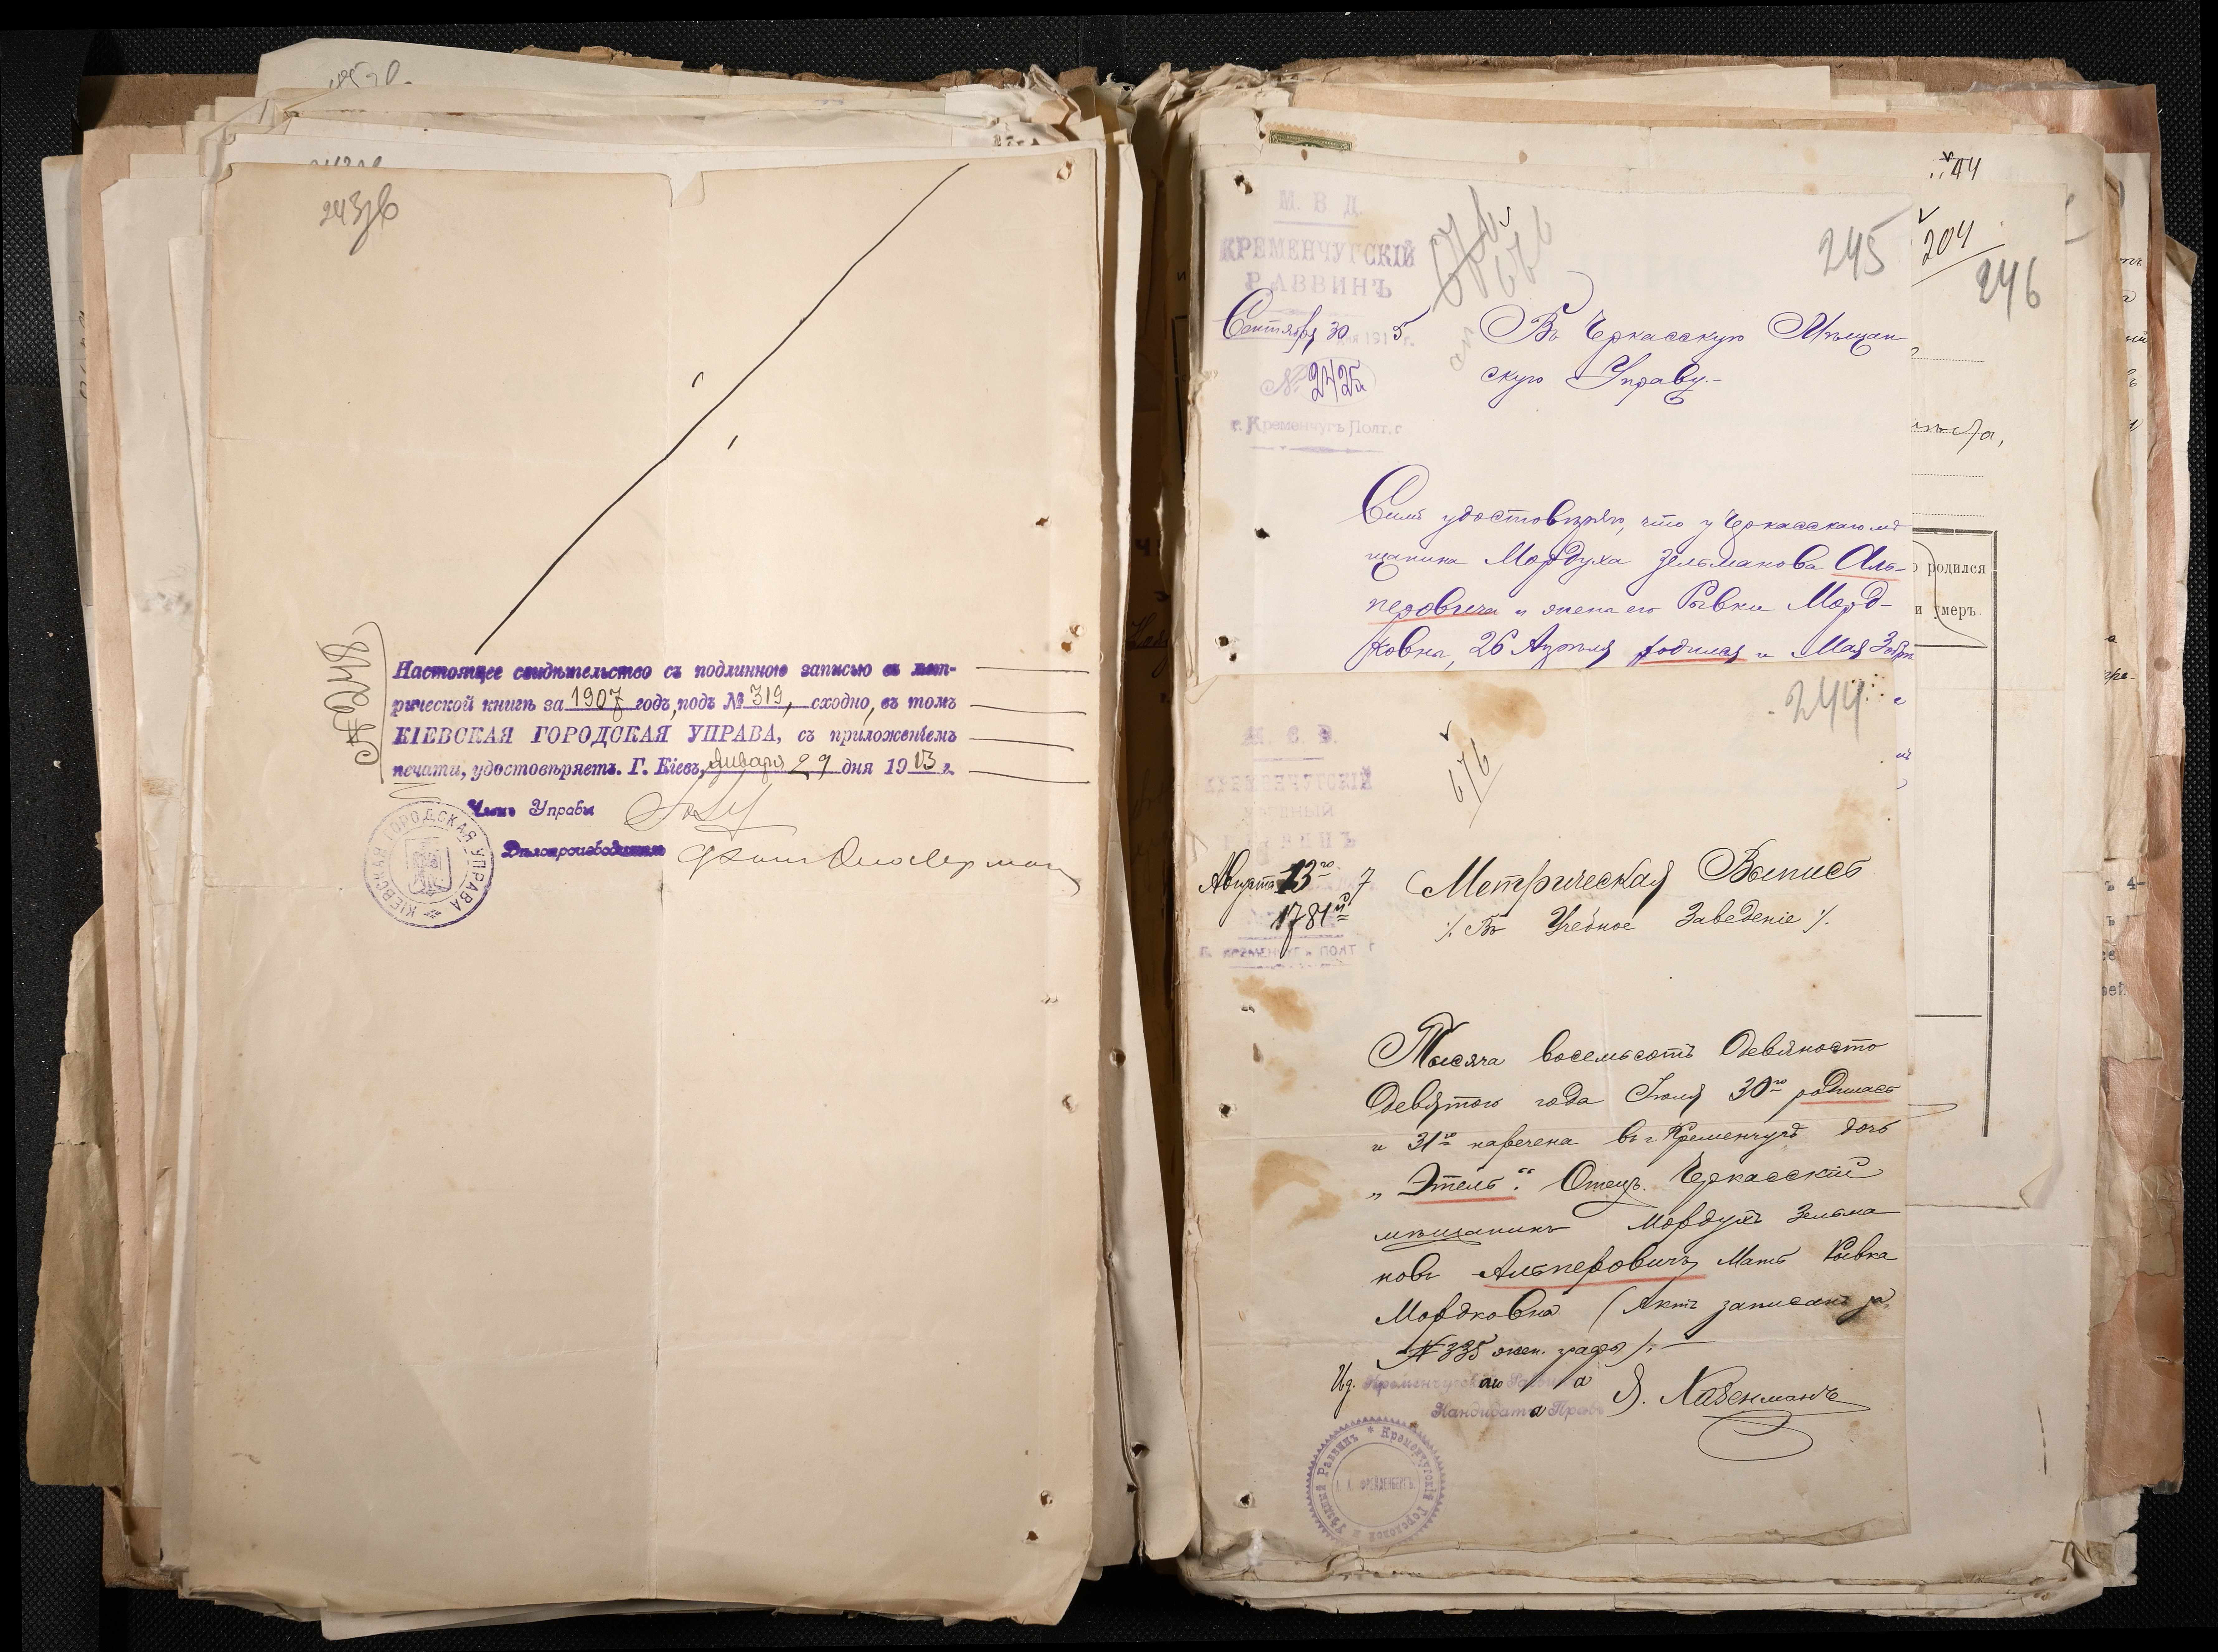 243об
№ 248
Настоящее свидѣтельство съ подлинною записью въ мет-
рической книгѣ за 1907 годъ, подъ № 319, сходно, въ томъ
КІЕВСКАЯ ГОРОДСКАЯ УПРАВА, съ приложеніемъ
печати, удостовѣряетъ. Г. Кіевъ, Января 29 дня 1913 г.
Членъ Управы
Дѣлопроизводитель
КІЕВСКАЯ ГОРОДСКАЯ УПРАВА
44
204
246
родился
и умеръ.
М. В. Д.
КРЕМЕНЧУГСКІЙ
РАВВИНЪ
Сентября 30 дня 1915 г.
№ 2425
г. Кременчугъ Полт. г
676
245
Въ Черкасскую Мѣщан
скую Управу.-
Симъ удостовѣряю, что у Черкасскаго мѣ
щанина Мордуха Зельманова Аль-
перовича и жены его Рывки Морд-
ковны, 26 Апрѣля родилась и Мая 3
244
676
М. В. Д.
КРЕМЕНЧУГСКІЙ
УѢЗДНЫЙ
РАВВИНЪ
Августа 13го 7
1781
Г. КРЕМЕНЧУГЪ ПОЛТ. Г
Метрическая Выпись
/. Въ Учебное Заведеніе /.
Тысяча восемьсотъ девяносто
девятого года Іюля 30го родилась
и 31го наречена въ г. Кременчугѣ дочь
„Этель“. Отецъ. Черкасскій
мѣщанинъ Мордухъ Зельма
новъ Альперовичъ, Мать Рывка
Мордковна (Актъ записанъ за
№ 335 жен. графы).—
Кременчугскаго Раввина
Кандидата Правъ
Я. Хазенманъ
Кременчугскій Городской и Уѣздный Раввинъ